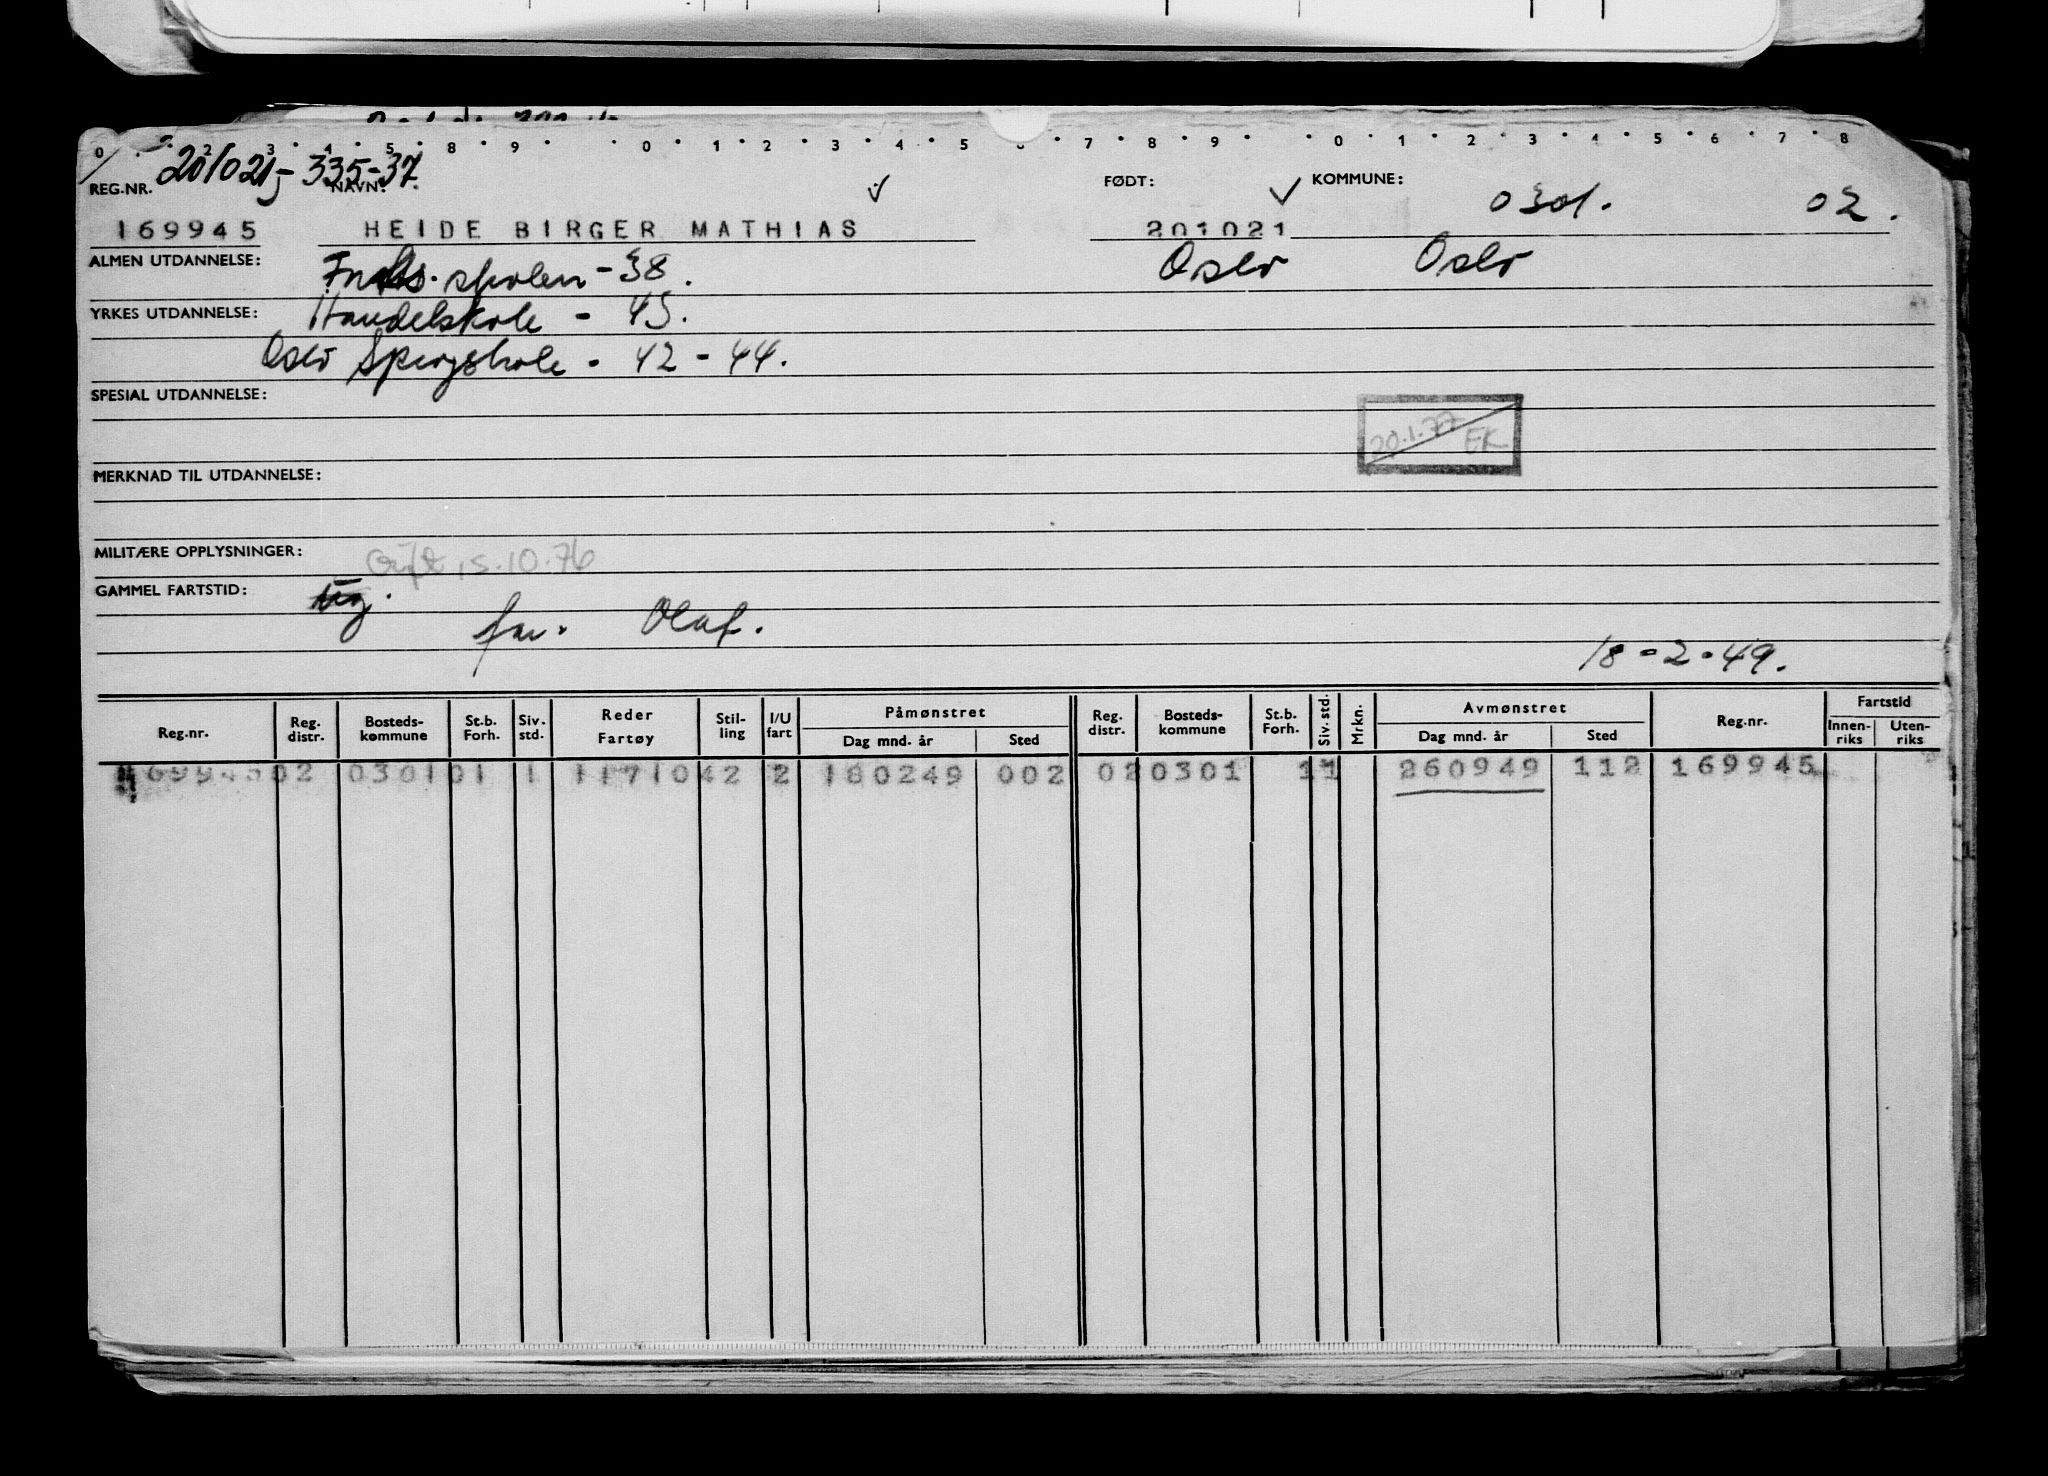 0 2 3 4 5 8 9 0 1 2 3 4 5 7 8 9 0 1 2 3 4 5 6 7 8
201021-335-37.
REG.NR. NAVN: FØDT: KOMMUNE: 0301. 02.
169945 HEIDE BIRGER MATHIAS 201021
ALMEN UTDANNELSE: skolen - 38. Oslo Oslo
YRKES UTDANNELSE: Handelskole - 45.
Oslo - 42 - 44.
SPESIAL UTDANNELSE:
20.1.77 EK
MERKNAD TIL UTDANNELSE:
MILITÆRE OPPLYSNINGER: Gift 15.10.76
GAMMEL FARTSTID: Ug.
far. Olaf.
18-2-49.
Reg.nr. Reg. distr. Bosteds-kommune St.b. Forh. Siv. std. Reder Fartøy Stil-ling I/U fart Påmønstret Dag mnd. år Sted Reg. distr. Bosteds-kommune St.b. Forh. Siv. std. Mrkn. Avmønstret Dag mnd. år Sted Reg.nr. Fartstid Innen-riks Uten-riks
169945 02 0301 01 1 11710 42 2 180249 002 02 0301 11 260949 112 169945